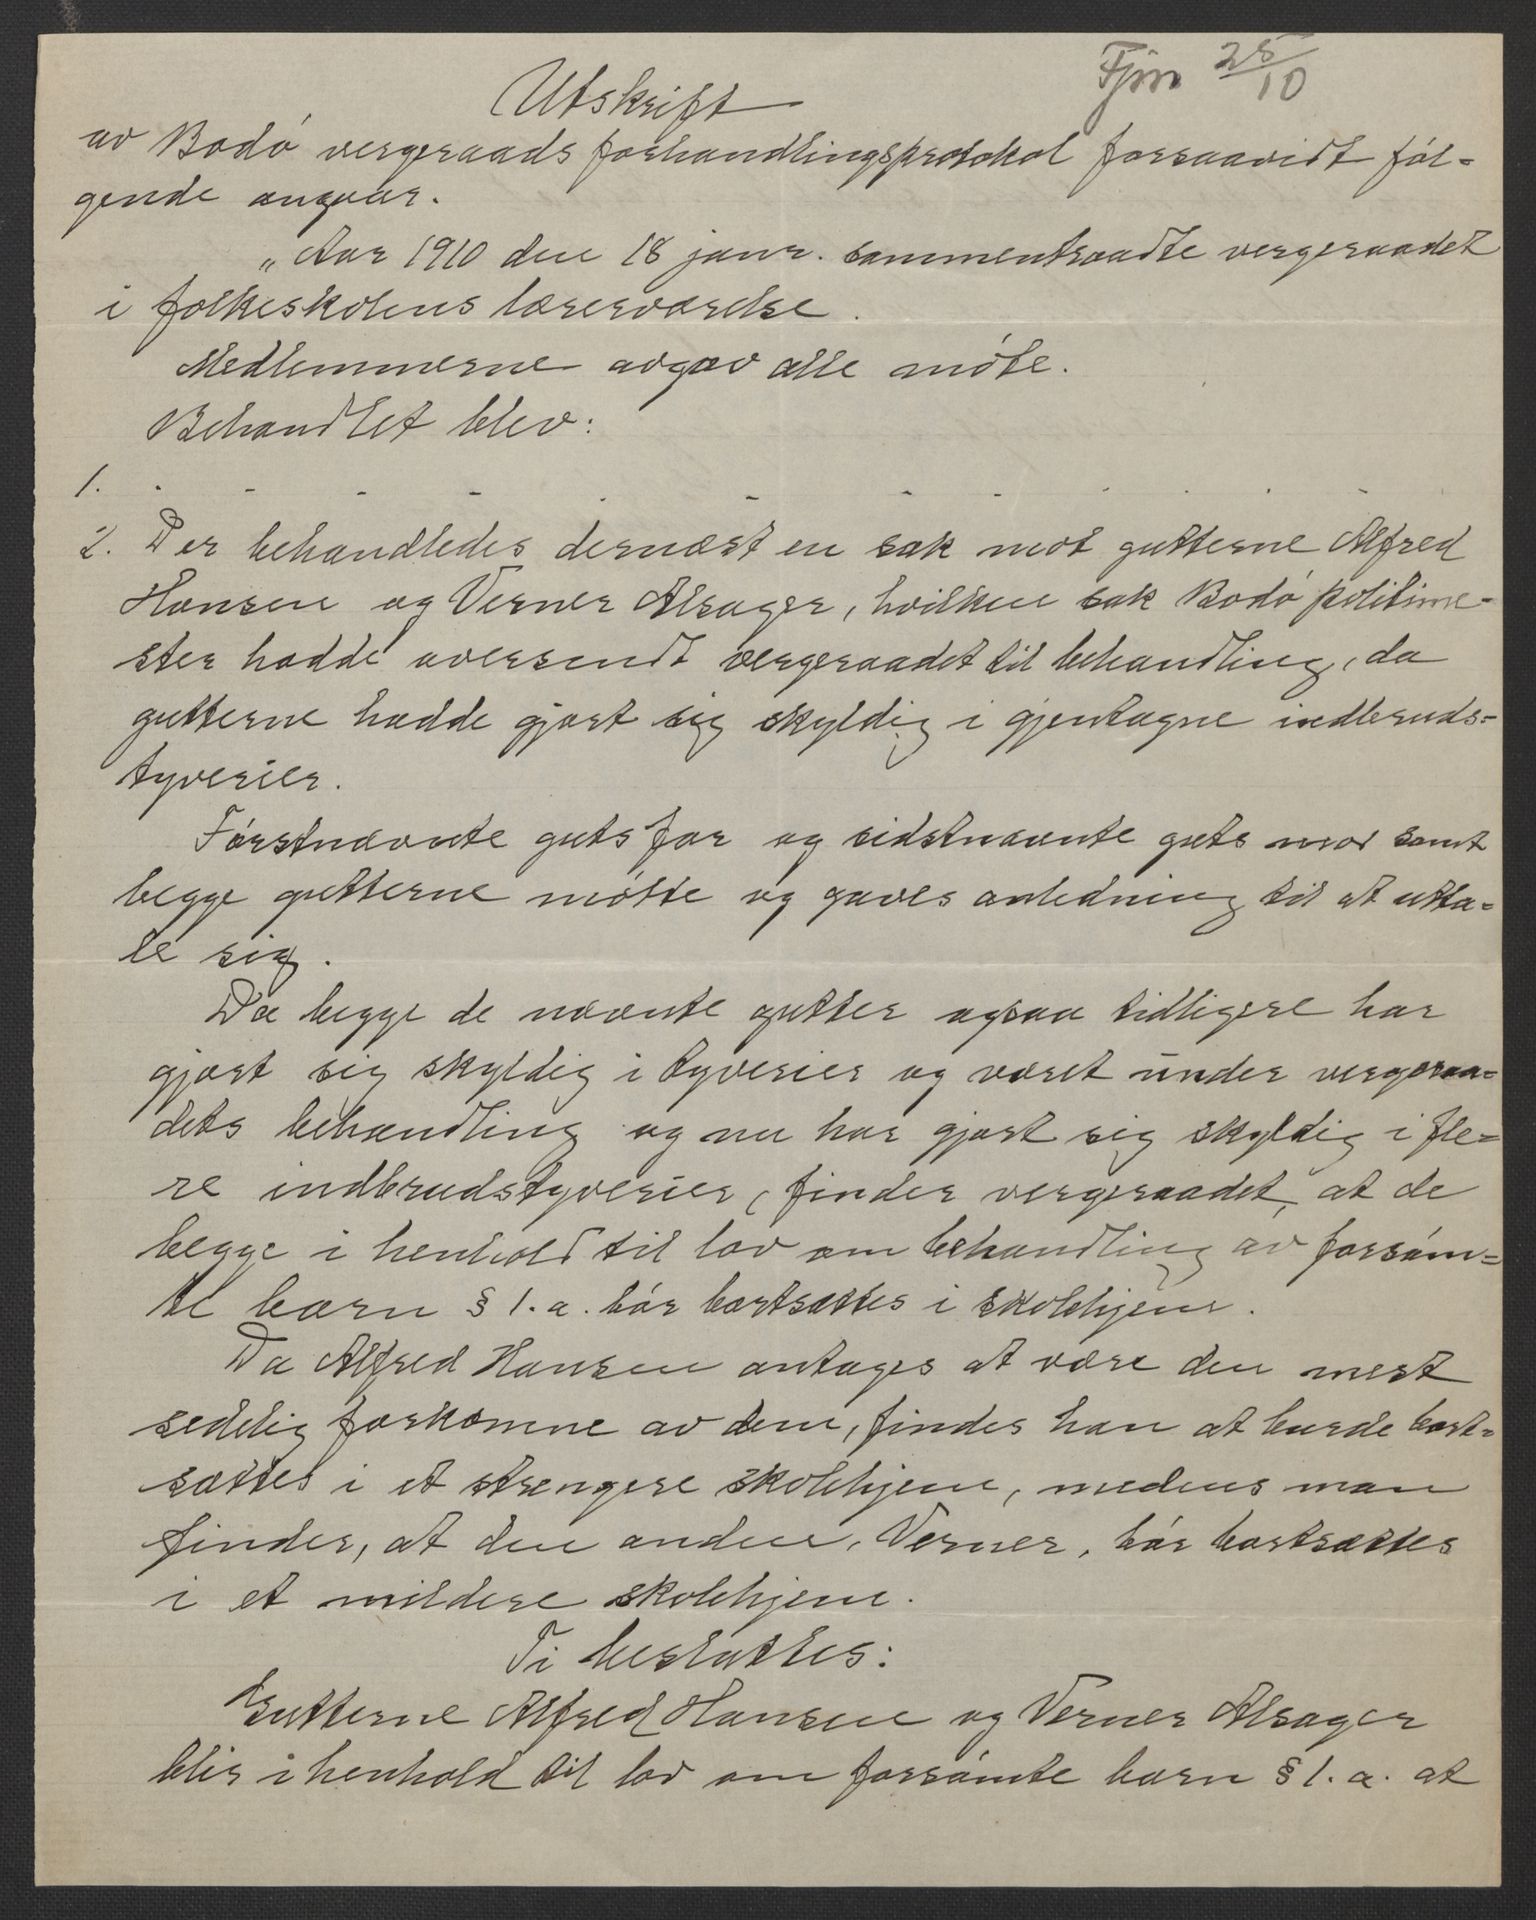 Fjm 25/10
Utskrift
av Bodø vergeraads forhandlingsprotokol forsaavidt føl-
gende angaar.
„Aar 1910 den 18 janr. sammentraadte vergeraadet
i folkeskolens lærerværelse.
Medlemmerne avgav alle møte.
Behandlet blev:
1. - - - - - - - - - - - -
2. Der behandledes dernæst en sak mot gutterne Alfred
Hansen og Verner Alsager, hvilken sak Bodø politime-
ster hadde oversendt vergeraadet til behandling, da
gutterne hadde gjort sig skyldig i gjentagne indbruds-
tyverier.
Førstnævnte guts far og sidstnævnte guts mor samt
begge gutterne møtte og gaves anledning til at utta-
le sig.
Da begge de nævnte gutter ogsaa tidligere har
gjort sig skyldig i tyverier og været under vergeraa-
dets behandling og nu har gjort sig skyldig i fle-
re indbrudstyverier, finder vergeraadet, at de
begge i henhold til lov om behandling av forsøm-
te børn § 1.a. bør bortsættes i skolehjem.
Da Alfred Hansen antages at være den mest
sedelig forkomne av dem, findes han at burde bort-
sættes i et strengere skolehjem, medens man
finder, at den anden, Verner, bør bortsættes
i et mildere skolehjem.
Ti besluttes:
Gutterne Alfred Hansen og Verner Alsager
blir i henhold til lov om forsømte børn § 1.a. at